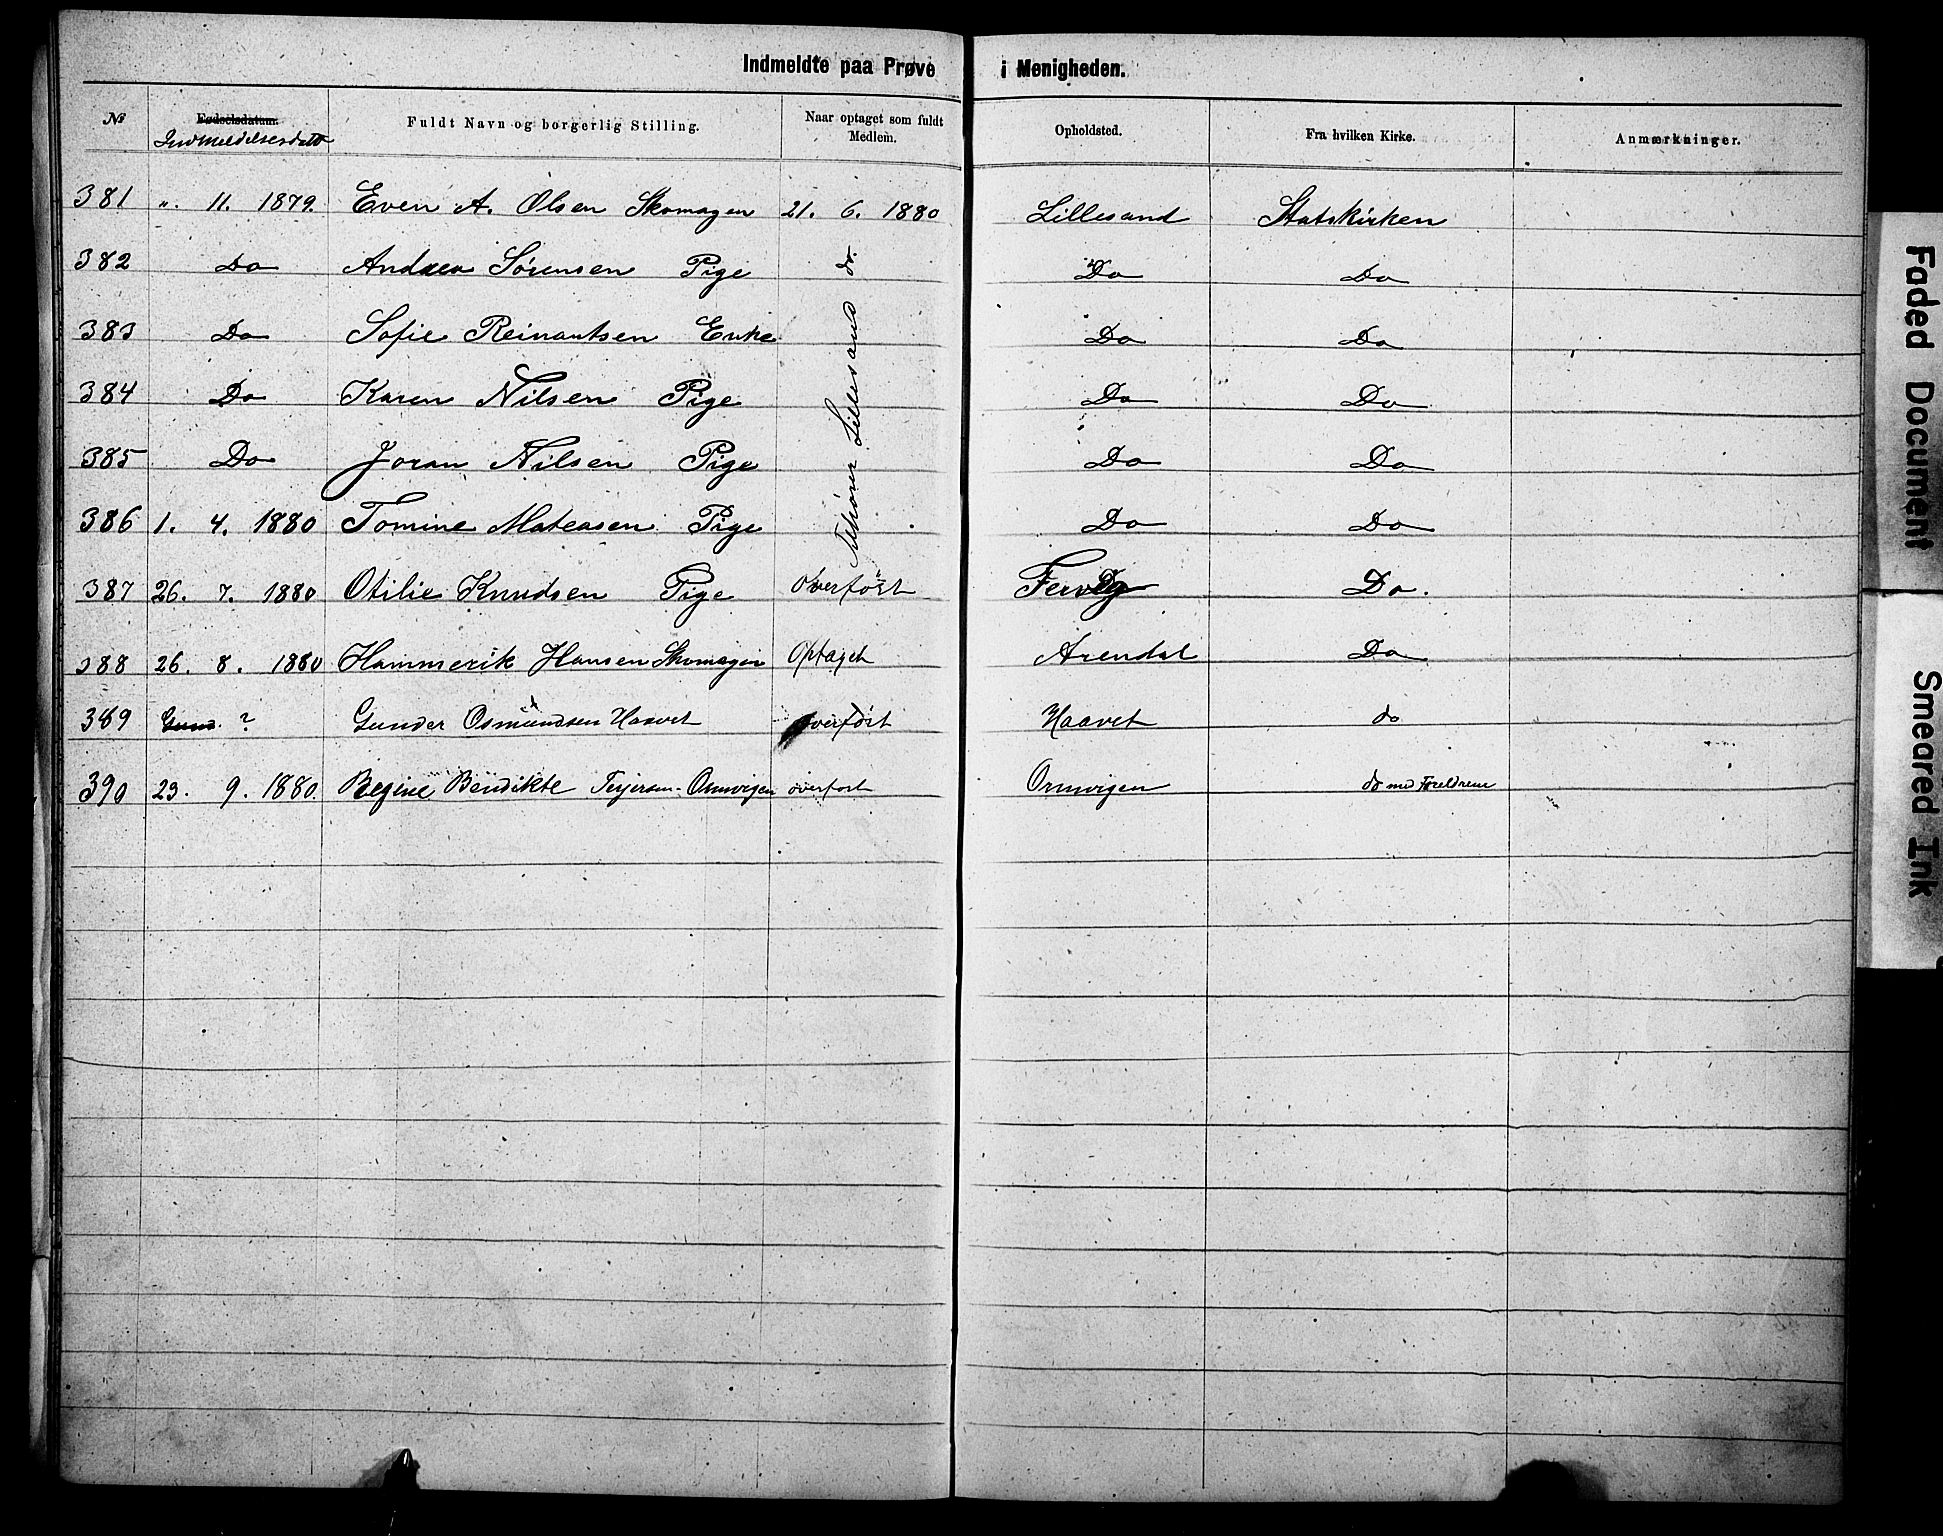 Indmeldte paa Prøve i Menigheden.
№ Fødselsdatum. Indmeldelsesdato Fuldt Navn og borgerlig Stilling. Naar optaget som fuldt Medlem. Opholdsted. Fra hvilken Kirke. Anmærkninger.
381 „. 11. 1879. Even A. Olsen Skomager 21. 6. 1880 Lillesand Statskirken
382 Do Andrea Sørensen Pige do. Do Do
383 Do Sofie Reinartsen Enke Do Do
384 Do Karen Nilsen Pige Do Do
385 Do Joran Nilsen Pige Do Do
386 1. 4. 1880 Tomine Mateasen Pige Do Do
Lillesand
387 26. 7. 1880 Otilie Knudsen Pige Overført Do.
388 26. 8. 1880 Hammerik Hansen Skomager Optaget Arendal Do
389 ? Gunder Osmundsen Haavet overført Haavet do
390 23. 9. 1880. Regine Bendikte Terjersen Ormvigen overført Ormvigen do med Foreldrene
Faded Document
Smeared Ink